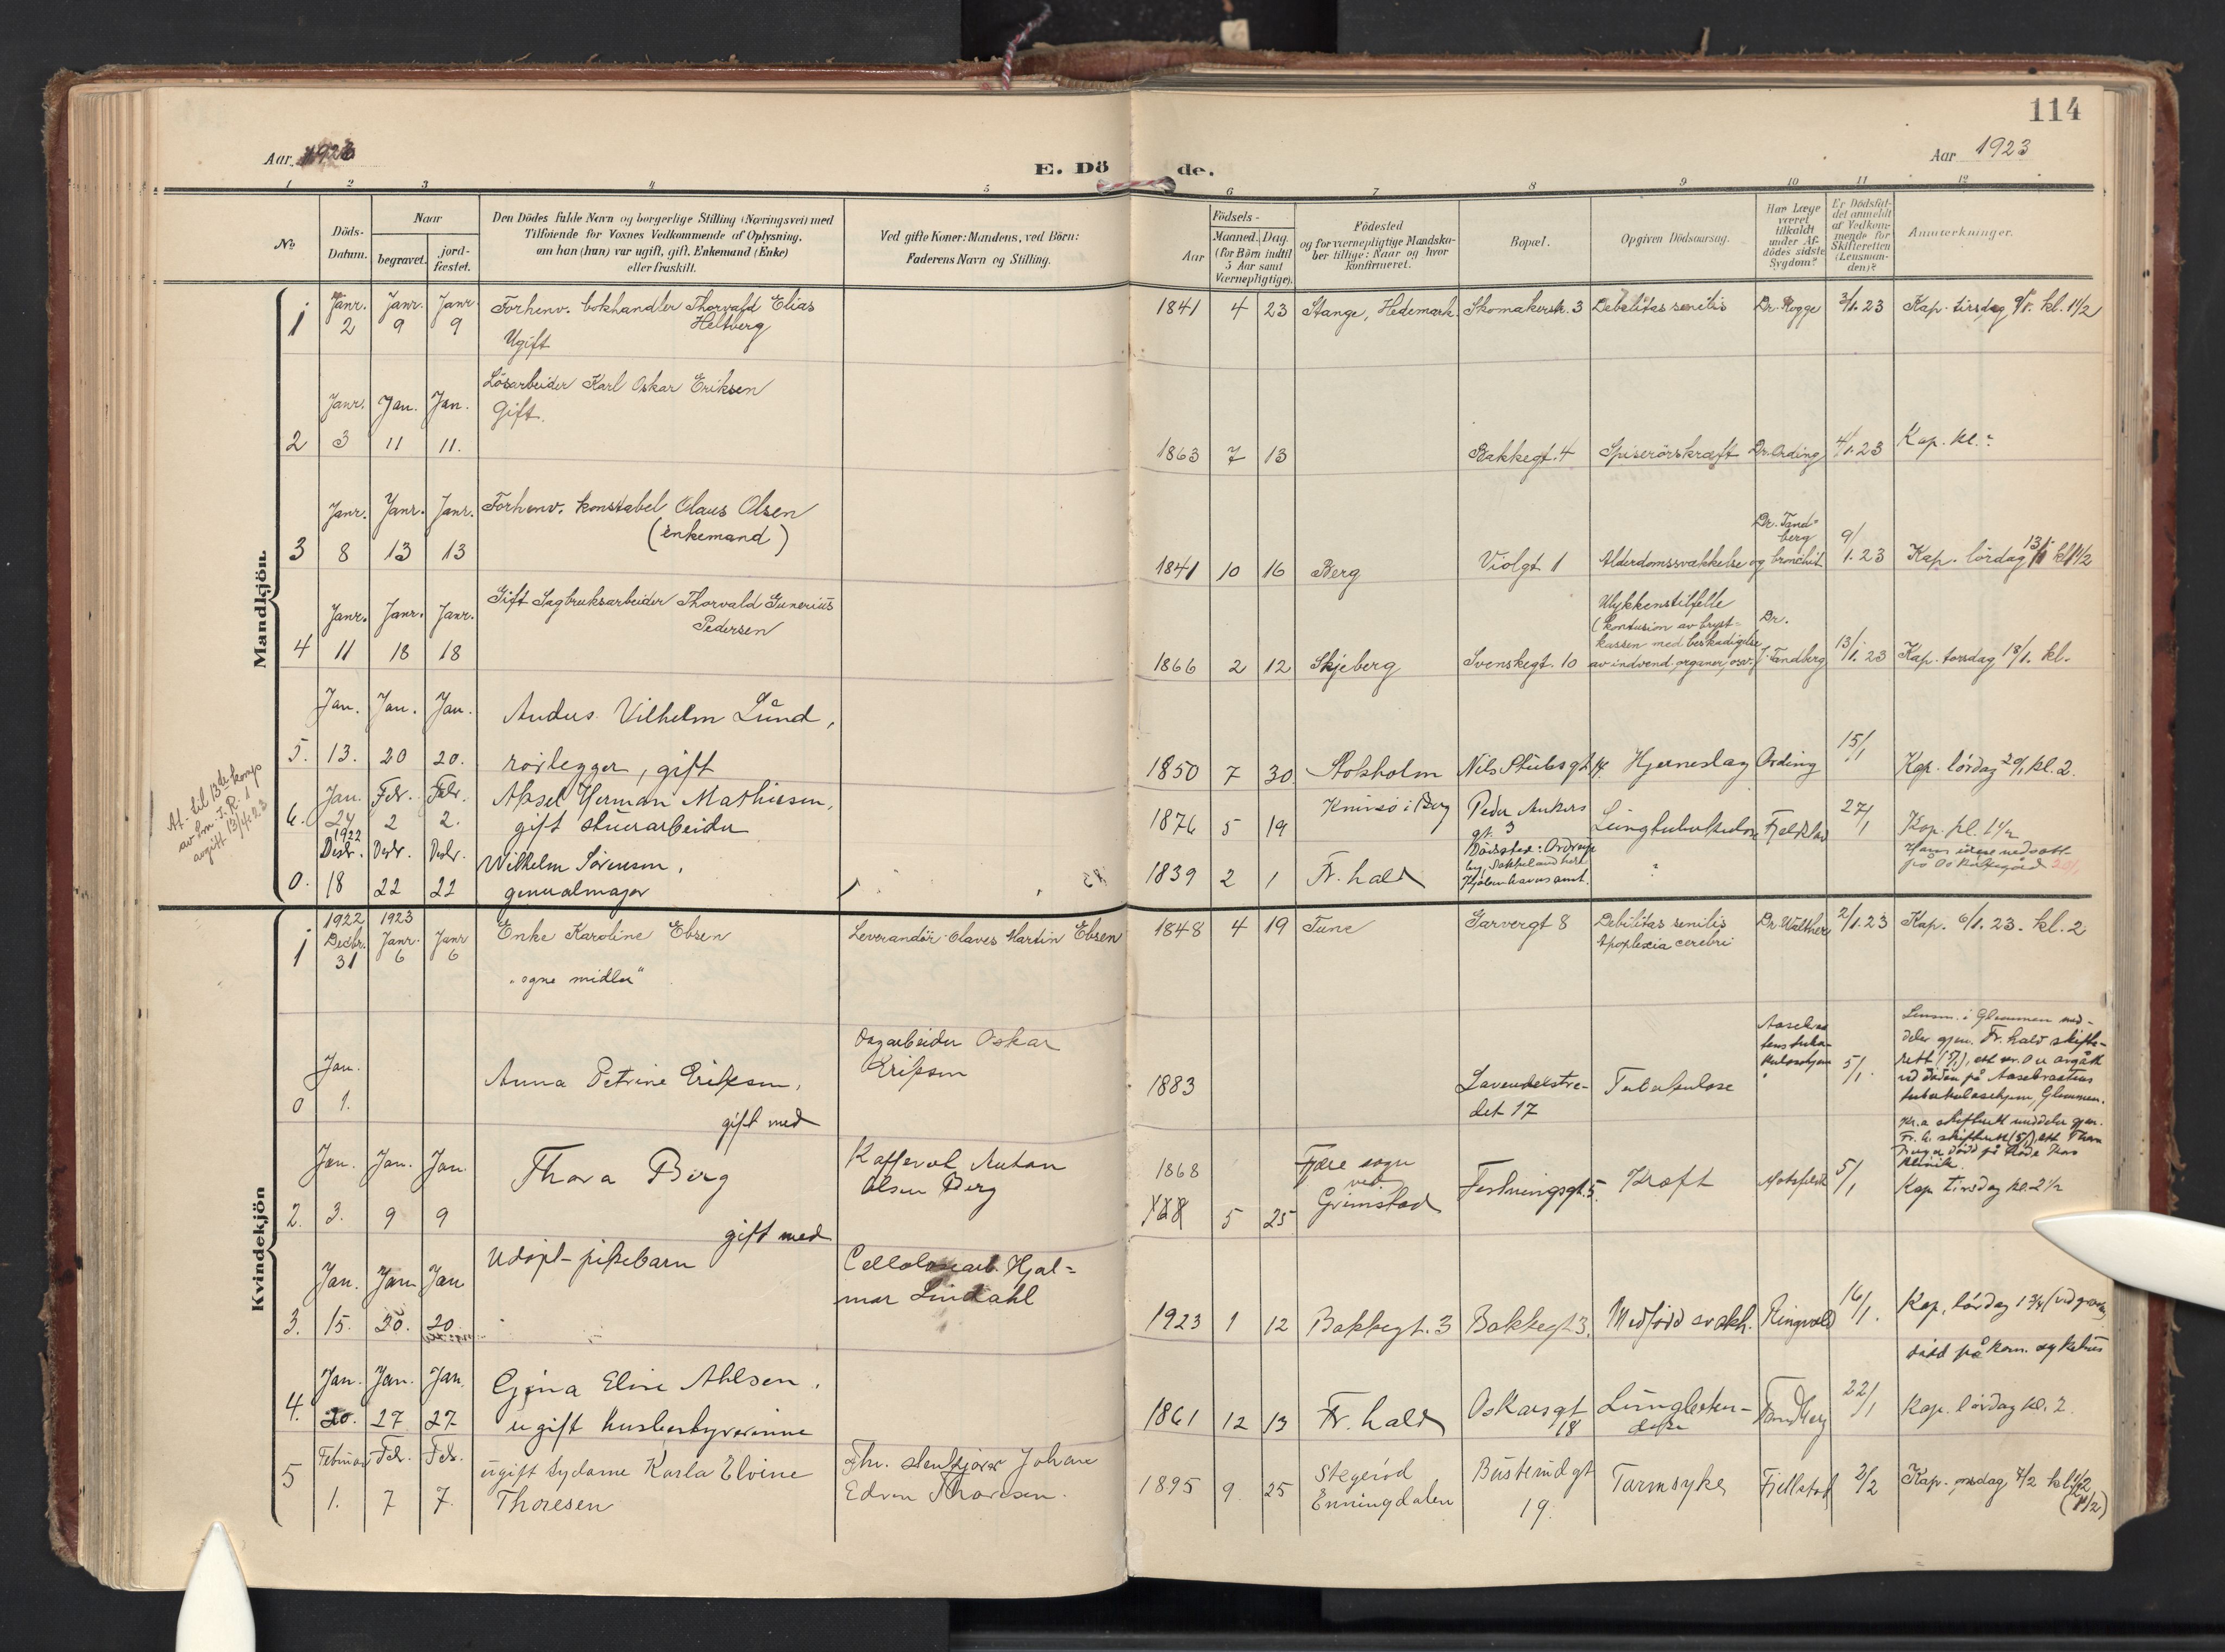 114
Aar 1923
E. Dö de.
Aar 1923
1 2 3 4 5 6 7 8 9 10 11 12
No
Döds-
Datum.
Naar
begravet.
jord-
fæstet.
Den Dödes fulde Navn og borgerlige Stilling (Næringsvei) med
Tilföiende for Voxnes Vedkommende af Oplysning,
om han (hun) var ugift, gift, Enkemand (Enke)
eller fraskilt.
Ved gifte Koner: Mandens, ved Börn:
Faderens Navn og Stilling.
Födsels-
Aar
Maaned. Dag.
(for Börn indtil
5 Aar samt
Værnepligtige).
Födested
og for værnepligtige Mandska-
ber tillige: Naar og hvor
konfirmeret.
Bopæl.
Opgiven Dödsaarsag.
Har Læge
været
tilkaldt
under Af-
dödes sidste
Sygdom?
Er Dödsfal-
det anmeldt
af Vedkom-
mende for
Skifteretten
(Lensman-
den)?
Anmærkninger.
Mandkjön.
1 Janr. 2 Janr. 9 Janr. 9
Forhenv. bokhandler Thorvald Elias
Heltberg
Ugift
1841 4 23 Stange, Hedemark. Skomakerstr. 3 Debelitas senilis Dr. Rogge 3/1. 23 Kap. tirsdag 9/1. kl. 1 1/2
2 Janr. 3 Jan. 11 Jan. 11.
Lösarbeider Karl Oskar Eriksen
Gift.
1863 7 13 Bakkegt. 4 Spiserörskræft Dr. Ording 4/1. 23 Kap. kl.?
3 Janr. 8 Janr. 13 Janr. 13
Forhenv. konstabel Olaus Olsen
(enkemand)
1841 10 16 Berg Violgt 1 Alderdomssvakkelse og bronchit
Dr. Tand-
berg
9/1. 23 Kap. lördag 13/1 kl 1 1/2
4 Janr. 11 Janr. 18 Janr. 18
Gift Sagbruksarbeider Thorvald Gunerius
Pedersen
1866 2 12 Skjeberg Svenskegt. 10
Ulykkenstilfelle
(kontusion av bryst-
kassen med beskadigelse
av indvend. organer, osv.
Dr.
J. Tandberg 13/1. 23 Kap. torsdag 18/1. kl.
5. Jan. 13. Jan. 20 Jan. 20.
Andus Vilhelm Lund,
rørlegger, gift
1850 7 30 Stokholm Nils Stubsgt 14. Hjerneslag Ording 15/1 Kap. lördag 20/1 kl. 2.
At. til 13de komp
av Inn. I. R. 1
avgitt 13/4 23
6. Jan. 24 Febr. 2 Febr. 2.
Aksel Herman Mathiesen,
gift stuerarbeider
1876 5 19 Knivsö i Berg
Peder Ankers
gt. 3
Lungtuberkulose Fjeldstad 27/1 Kap. kl. 1 1/2
0. 1922 Desbr. 18 Desbr. 22 Desbr. 22
Wilhelm Sörensen,
generalmajor
1839 2 1 Fr. hald
Dödssted: Ordrup
Kjöbenhavns amt.
Hans urne nedsatt
på Os kirkegård 20/1
Kvindekjön
1 1922 Decbr. 31 1923 Janr. 6 Janr 6
Enke Karoline Ebsen
"egne midler"
Leverandör Olaves Martin Ebsen
1848 4 19 Tune Garvergt 8
Debilitas senilis
Apoplexia cerebri
Dr. Walther 2/1. 23 Kap. 6/1. 23. kl. 2
0 Jan. 1.
Anna Petrine Eriksen,
gift med
Dagarbeider Oskar
Eriksen
1883
Lavendelstre-
det 17
Tuberkulose
5/1.
Lensm. i Glemmen med-
deler gjen. Fr. hald skifte-
rett (5/1), att nr. 0 er avgått
ved döden på Aasebraatens
tuberkulosehjem, Glemmen.
2. Jan. 3. Jan. 9 Jan. 9
Thora Berg
gift med
Kaffevert Anton
Olsen Berg
1868 5 25
Fjære sogn
ved
Grimstad
Festningsgt. 5. Kræft 5/1
Kr.a skifterett meddeler gjen.
Fr. h. skifterett (5/1), att Thora
Berg er död på Röde Kors
klinik.
Kap. tirsdag kl. 2 1/2
3. Jan. 15. Jan 20. Jan 20.
Udöpt pikebarn
Cellolosearb. Hjal-
mar Lindahl
1923 1 12 Bakkegt. 3 Bakkegt 3. Medfödt svakh. Ringvold 16/1. Kap. lördag 1 3/4
4. Jan. 20. Jan. 27 Jan. 27
Gina Elise Ahlsen,
ugift husbestyrerinne
1861 12 13 Fr. hald
Oskarsgt
18
Lungbeten-
delse
Tandberg 22/1
död på kom. sykehus
Kap. lördag kl. 2.
5 Februar 1. Febr. 7 Febr. 7.
ugift sydame Karla Elvine
Thoresen
Fhv. stenkjører Johan
Edvin Thoresen.
1895 9 25
Stegeröd
Enningdalen
Busterudgt
19.
Tarmsyke Fjellstad 2/2 Kap. onsdag 7/2 kl. 1 1/2